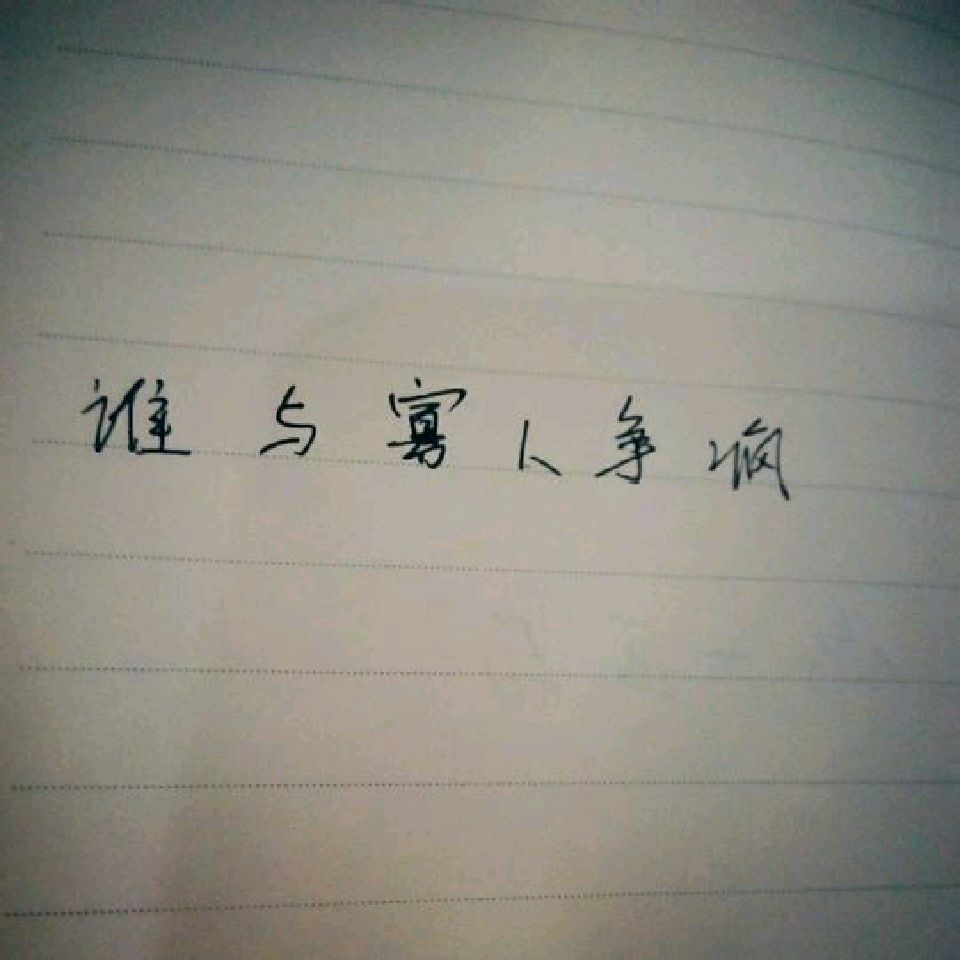 谁与寡人争疯